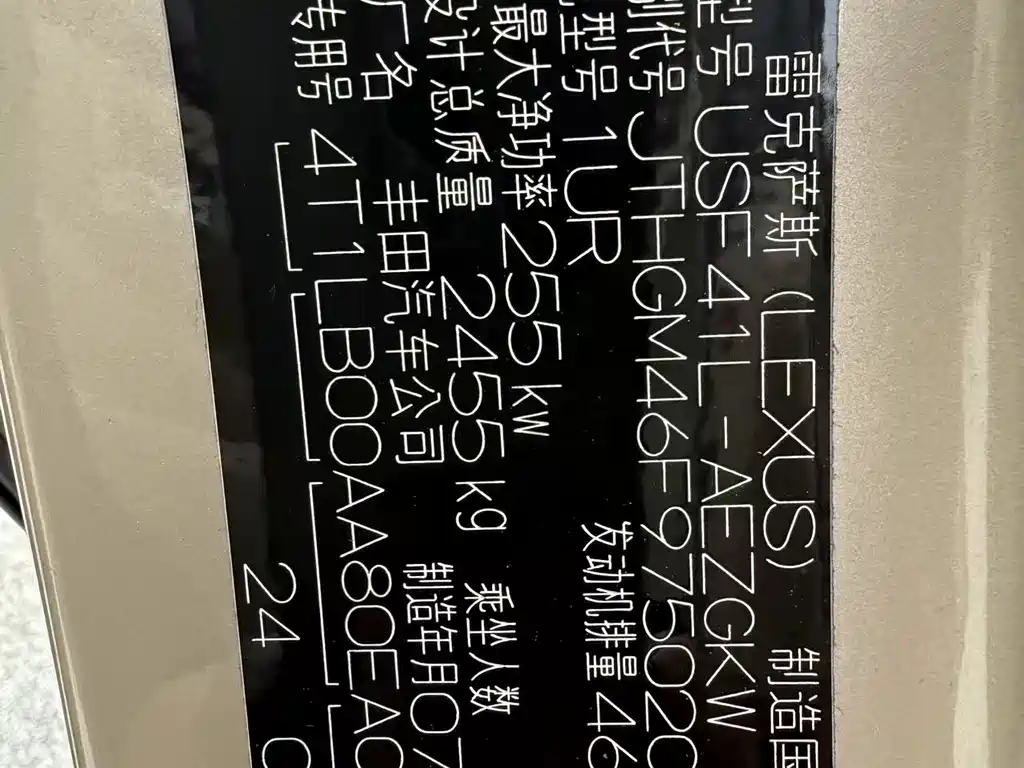 雷克萨斯 (LEXUS) 制造国
型号 USF41L-AEZGKW
别代号 JTHGM46F975020
机型号 1UR 发动机排量 46
最大净功率 255 kW
设计总质量 2455 kg 乘坐人数
厂名 丰田汽车公司 制造年月 07
专用号 4T1LB00AA80EA0
24 0